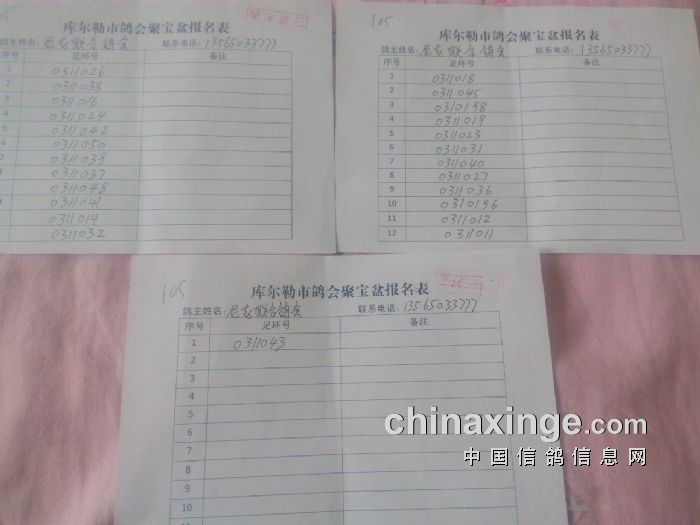 05
库尔勒市鸽会聚宝盆报名表
鸽主姓名: 联合鸽舍 联系电话: 13565033777
序号 足环号 备注
1 0311026
2 0311038
3 0311016
4 0311024
5 0311042
6 0311050
0311039
0311037
0311048
0311041
0311014
0311032
105
库尔勒市鸽会聚宝盆报名表
鸽主姓名: 联合鸽舍 联系电话: 13565033777
序号 足环号 备注
1 0311018
2 0311045
3 0310198
4 0311019
5 0311023
6 0311031
7 0311040
8 0311027
9 0311036
10 0310196
11 0311012
12 0311011
105
库尔勒市鸽会聚宝盆报名表
鸽主姓名: 联合鸽舍 联系电话: 13565033777
序号 足环号 备注
1 0311043
2
3
4
5
6
7
8
9
10
chinaxinge.com
中国信鸽信息网